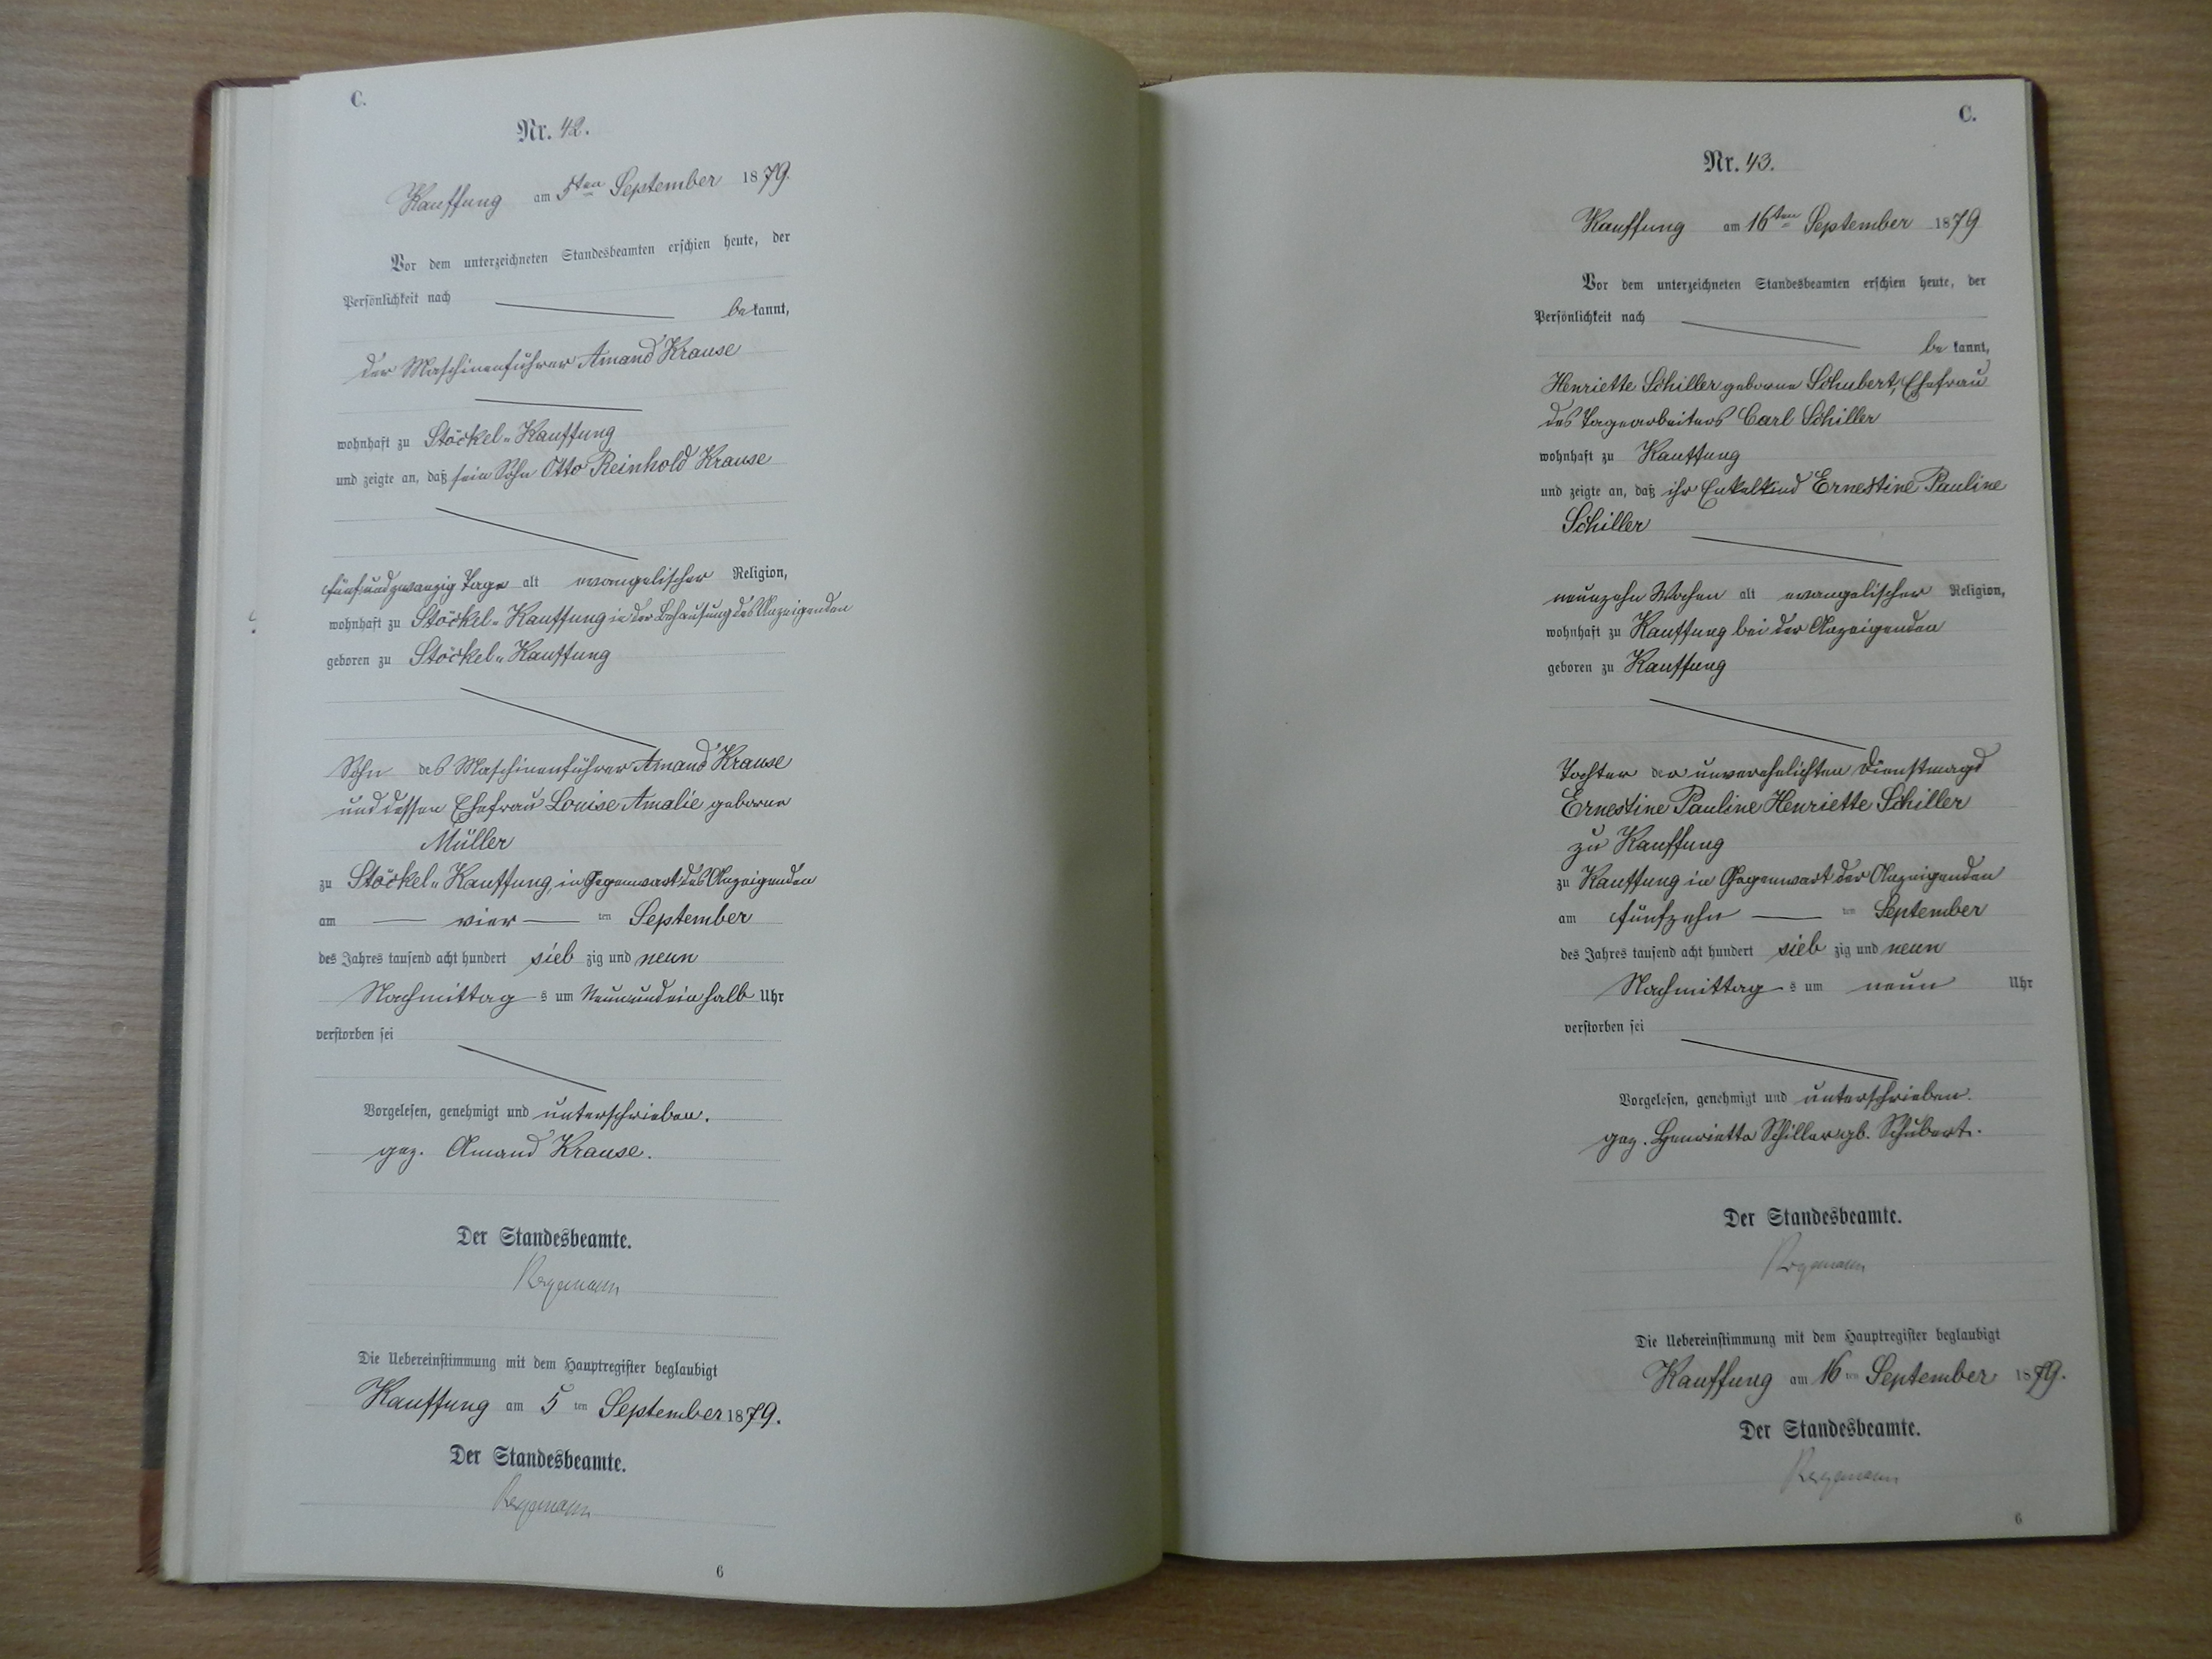 C.
Nr. 42.
Kauffung am 5ten September 1879.
Vor dem unterzeichneten Standesbeamten erschien heute, der
Persönlichkeit nach
bekannt,
der Maschinenführer Amand Krause
wohnhaft zu Stöckel-Kauffung
und zeigte an, daß sein Sohn Otto Reinhold Krause
fünfundzwanzig Tage alt evangelischer Religion,
wohnhaft zu Stöckel-Kauffung in der Behausung des Anzeigenden
geboren zu Stöckel-Kauffung
Sohn des Maschinenführer Amand Krause
und dessen Ehefrau Louise Amalie geborne
Müller
zu Stöckel-Kauffung, in Gegenwart des Anzeigenden
am vier ten September
des Jahres tausend acht hundert siebzig und neun
Nachmittags um Neunundeinhalb Uhr
verstorben sei
Vorgelesen, genehmigt und unterschrieben.
gez. Amand Krause.
Der Standesbeamte.
Die Uebereinstimmung mit dem Hauptregister beglaubigt
Kauffung am 5ten September 1879.
Der Standesbeamte.
6
C.
Nr. 43.
Kauffung am 16ten September 1879
Vor dem unterzeichneten Standesbeamten erschien heute, der
Persönlichkeit nach
bekannt,
Henriette Schiller geborne Schubert, Ehefrau
des Tagearbeiters Carl Schiller
wohnhaft zu Kauffung
und zeigte an, daß ihr Enkelkind Ernestine Pauline
Schiller
neunzehn Wochen alt evangelischer Religion,
wohnhaft zu Kauffung bei der Anzeigenden
geboren zu Kauffung
Tochter der unverehelichten Dienstmagd
Ernestine Pauline Henriette Schiller
zu Kauffung
zu Kauffung in Gegenwart der Anzeigenden
am fünfzehn ten September
des Jahres tausend acht hundert siebzig und neun
Nachmittags um neun Uhr
verstorben sei
Vorgelesen, genehmigt und unterschrieben.
gez. Henriette Schiller gb. Schubert.
Der Standesbeamte.
Die Uebereinstimmung mit dem Hauptregister beglaubigt
Kauffung am 16ten September 1879.
Der Standesbeamte.
6